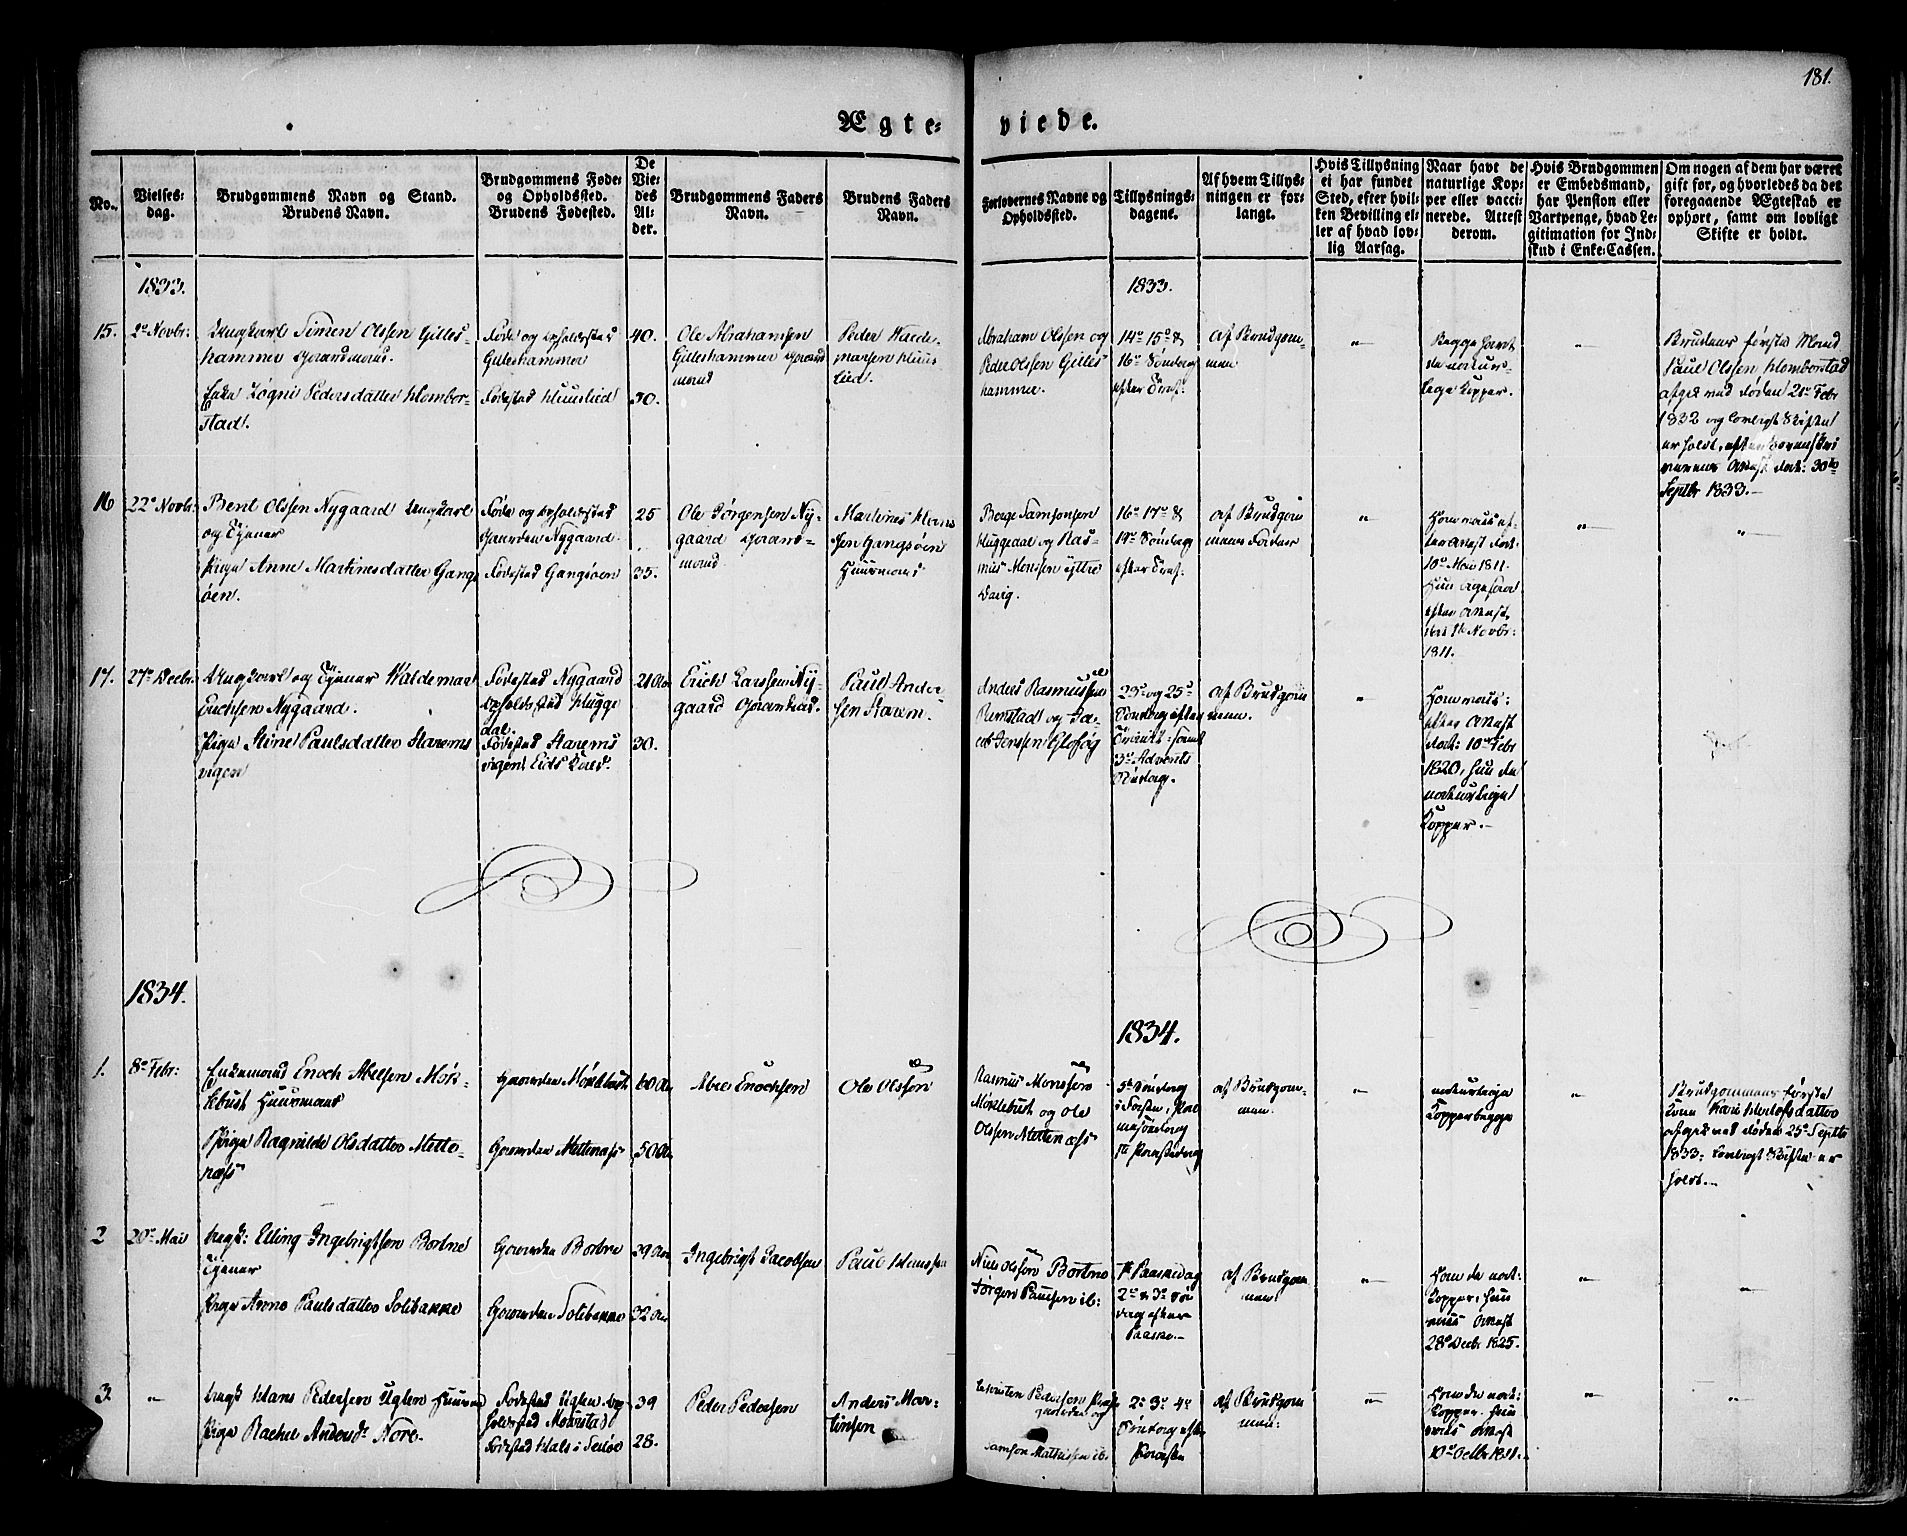 181.
Ægte-
viede.
No.
Vielses-
dag.
Brudgommens Navn og Stand.
Brudens Navn.
Brudgommens Føde-
og Opholdssted.
Brudens Fødested.
De
Vie-
des
Al-
der.
Brudgommens Faders
Navn.
Brudens Faders
Navn.
Forlovernes Navne og
Opholdssted.
Tillysnings-
dagene.
Af hvem Tillys-
ningen er for-
langt.
Hvis Tillysning
ei har fundet
Sted, efter hvil-
ken Bevilling el-
ler af hvad lov-
lig Aarsag.
Naar havt de
naturlige Kop-
per eller vacci-
nerede. Attest
derom.
Hvis Brudgommen
er Embedsmand,
har Pension eller
Vartpenge, hvad Le-
gitimation for Ind-
skud i Enke-Cassen.
Om nogen af dem har været
gift før, og hvorledes da det
foregaaende Ægteskab er
ophørt, samt om lovligt
Skifte er holdt.
1833.
1833.
15.
2de Novbr:
Ungkarl Simen Olssen Gilles-
hammer Gaardmand.
Enke Pedersdatter Homber-
stad.
Føde og opholdssted
Gilleshammer
Fødested Huuslied
40.
30.
Ole Abrahamsen
Gilleshammer Gaard
mand
Peder
Huus
lied.
Abraham Olssen og
Peder Olssen Gilles
hammer.
14de 15de &
16de Søndag
efter Tref:
af Brudgom-
men
"
Begge havt
de natur-
lige Kopper.
"
Brudens første Mand
Paul Olssen Homborstad
afgik ved Døden 21de Febr
1832 og lovligt Skifte
er holdt, efter Sorenskri
verens Attest dat: 30te
Septbr 1833.-
16
22de Novbr:
Bent Olssen Nygaard Ungkarl
og Tjener
Pige Anne Martinesdatter Gangs
øen.
Føde og opholdssted
Gaarden Nygaard.
Fødested Gangsøen
25
35.
Ole Jørgensen Ny-
gaard Gaard-
mand
Martines Hans
sen Gangsøen
Huusmand
Berge Samsonsen
Huggedal og Ras-
mus Monsen Yttre
Davig.
16de 17de &
19de Søndag
efter Tref:
af Brudgom
mens Fader
"
Han vacc ef-
ter Attest dat.
10de Mai 1811.
Hun ligesaa
efter Attest
Novbr:
1811.
"
"
17.
27de Decbr.
Ungkarl og Tjener Waldemar
Erichsen Nygaard.
Pige Stine Paulsdatter Starems
vigen
Fødested Nygaard
opholdssted Hugge
dal.
Fødested Starems
vigen Eids Præst.
21 Aar
30.
Erich Larssen Ny-
gaard Gaardmd.
Paul Ander
sen Starem.
Anders Rasmussen
Rimstad og Ja-
cob Jenssen
23de og 25de
Søndag efter
Trinit: samt
3de Advents
Søndag.
af Brudgom
men.
"
Han vacc:
efter Attest
dat: 10de Febr
1820, hun de
naturlige
Kopper.-
1834.
1834.
1.
8de Febr:
Enkemand Enoch Abelsen Mør-
kebust Huusmand
Pige Ragnilde Olsdatter Mette-
næss
Gaarden Mørkebust
Gaarden Mettenæss
60 Aar
50 Aar
Abel Enochsen
Ole Olssøn
Rasmus Monssøn
Mørkebust og Ole
Olssen Mettenæss
5te Søndag
i Fasten, Pal
mesøndag
1te Paaskedag
af Brudgom-
men.
"
naturlige
Kopper begge
"
Brudgommens første
Kone Kari datter
afgik ved Døden 25de Septbr
1833. Lovligt Skifte er
holdt.-
2
20de Mai
Ungk: Elling Ingebrigtsen Bortne
Tjener
Pige Anne Paulsdatter Solibakke
Gaarden Bortne
Gaarden Solibakke
29 Aar
32 Aar
Ingebrigt Jacobsen
Paul Hanssen
Niels Olssøn Bortne
Jørgen Paulsen ib:
1te Paaskedag
2de & 3de Søn
dag efter
Paaske.-
af Brudgom
men.
"
Han de nat:
Kopper, hun
vacc Attest
28de Decbr 1825.
"
"
3.
"
Ungk Hans Pedersen Uglen Huusmd
Pige Rachel Andersdr Nore.
Fødested Uglen Op
holdssted Maurstad
Fødested Hals i Selløe
39
28.
Peder Pedersen
Anders Mar-
tinsen
Pedersen
og
Samson Mathissen ib.
2de 3de 4de
Søndag efter
Paasken
af Brudgom
men:
"
Han de nat:
Kopper. hun
vacc Attest
10de Octbr 1811.
"
"